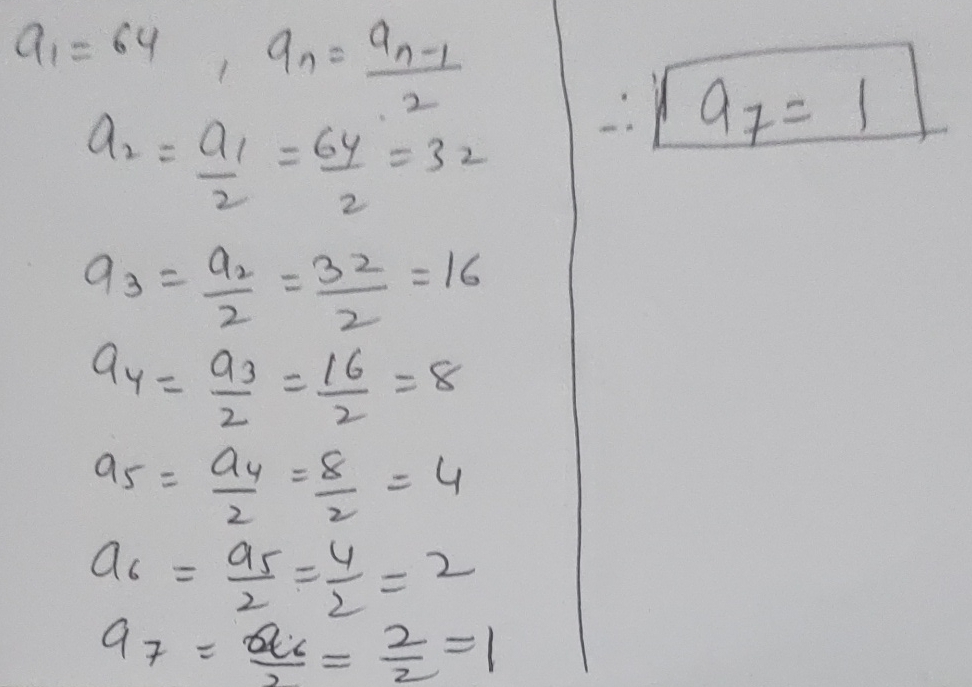 a₁ = 64 , aₙ = aₙ₋₁/2
a₂ = a₁/2 = 64/2 = 32
a₃ = a₂/2 = 32/2 = 16
a₄ = a₃/2 = 16/2 = 8
a₅ = a₄/2 = 8/2 = 4
a₆ = a₅/2 = 4/2 = 2
a₇ = a₆/2 = 2/2 = 1
∴ a₇ = 1